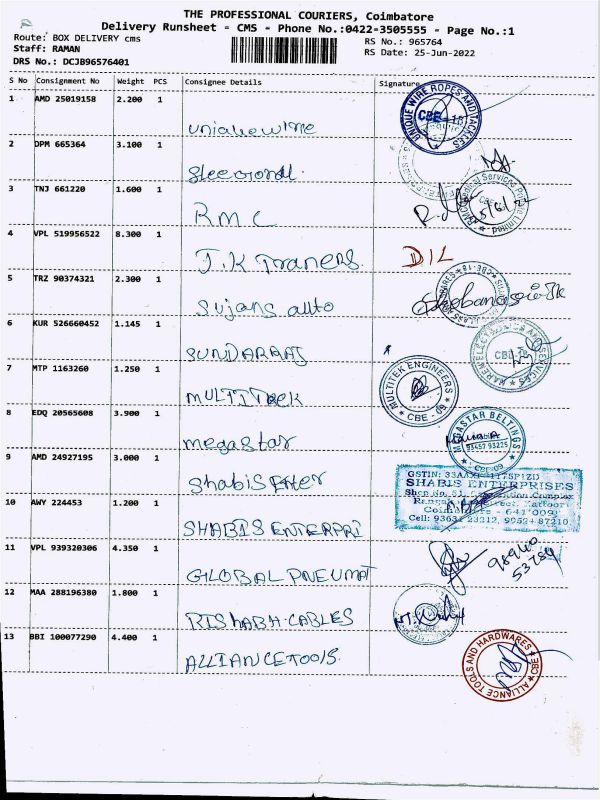 THE PROFESSIONAL COURIERS, Coimbatore
Delivery Runsheet - CMS - Phone No.:0422-3505555 - Page No.:1
Route: BOX DELIVERY cms
RS No.: 965764
Staff: RAMAN
RS Date: 25-Jun-2022
DRS No.: DCJB96576401
S No Consignment No Weight PCS Consignee Details Signature
1 AMD 25019158 2.200 1
UNIQUE WIRE ROPES AND TACKLES
CBE-18
2 DPM 665364 3.100 1
3 TNJ 661220 1.600 1
RMC
4 VPL 519956522 8.300 1
J.K Traners DIL
5 TRZ 90374321 2.300 1
Sujans auto
6 KUR 526660452 1.145 1
SUNDARRAJ
7 MTP 1163260 1.250 1
MULTITEK
MULTITEK ENGINEERS
CBE - 09
8 EDQ 20565608 3.900 1
megastar
MEGASTAR BELTINGS
93457 93225
CBE-09
9 AMD 24927195 3.000 1
Shabis Enter
SHABIS ENTERPRISES
Coimbatore - 641 009
Cell: 93631 23212, 99524 87210
10 AWY 224453 1.200 1
SHABIS ENTERPRI
11 VPL 939320306 4.350 1
GLOBAL PNEUMAT
98940
53784
12 MAA 288196380 1.800 1
RISHABH.CABLES
13 BBI 100077290 4.400 1
ALLIANCETOOLS.
ALLIANCE TOOLS AND HARDWARES
CBE